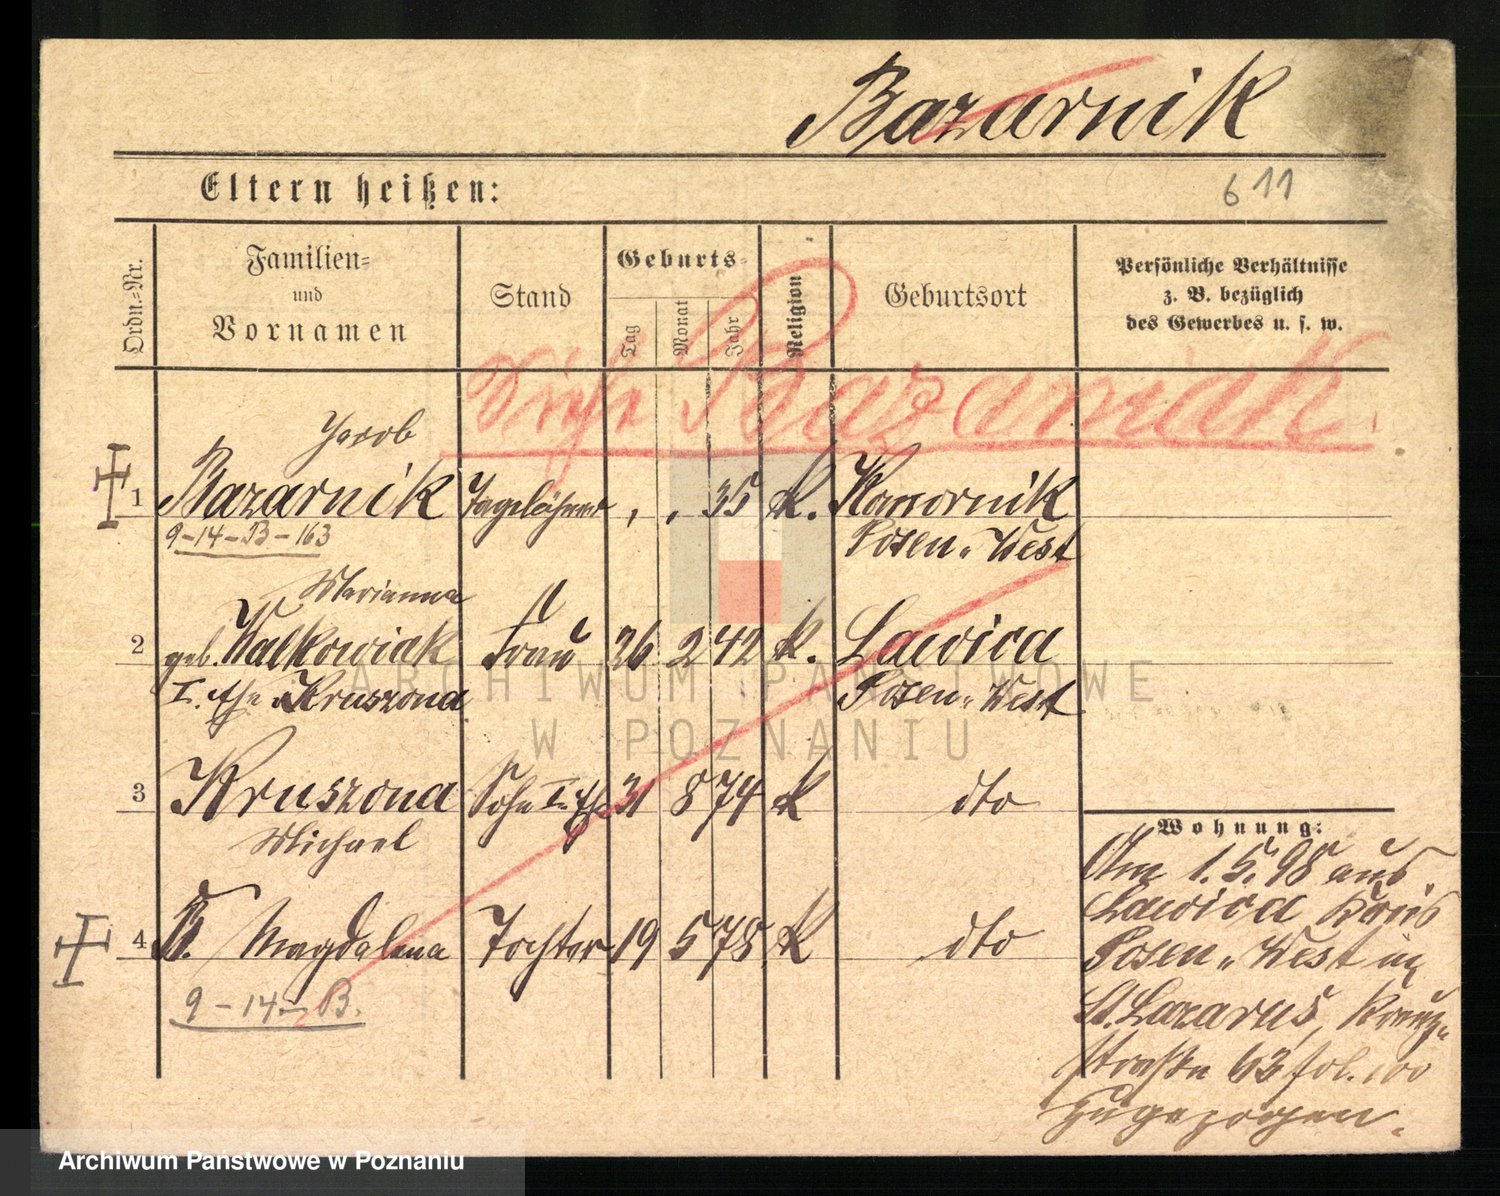 Bazarnik
Eltern heißen:
6 11
Ordn.-Nr.
Familien-
und
Vornamen
Stand
Geburts-
Tag
Monat
Jahr
Religion
Geburtsort
Persönliche Verhältnisse
z. B. bezüglich
des Gewerbes u. s. w.
Siehe Bazaniak.
Jacob
1 Bazarnik Tagelöhner , , 35 K. Komornik
9-14-B-163
Posen-West
Marianna
2 geb. Walkowiak Frau 26 2 42 K. Lawica
I. Ehe Kruszona Posen-West
3 Kruszona Sohn I. Ehe 31 8 74 K dto
Michael
4 B. Magdalena Tochter 19 5 78 K dto
9-14-B.
Wohnung:
Am 1.5.98 aus
Lawica Kreis
Posen-West in
St. Lazarus, Kreuz-
straße 63 fol. 100
zugezogen.
ARCHIWUM PAŃSTWOWE
W POZNANIU
Archiwum Państwowe w Poznaniu